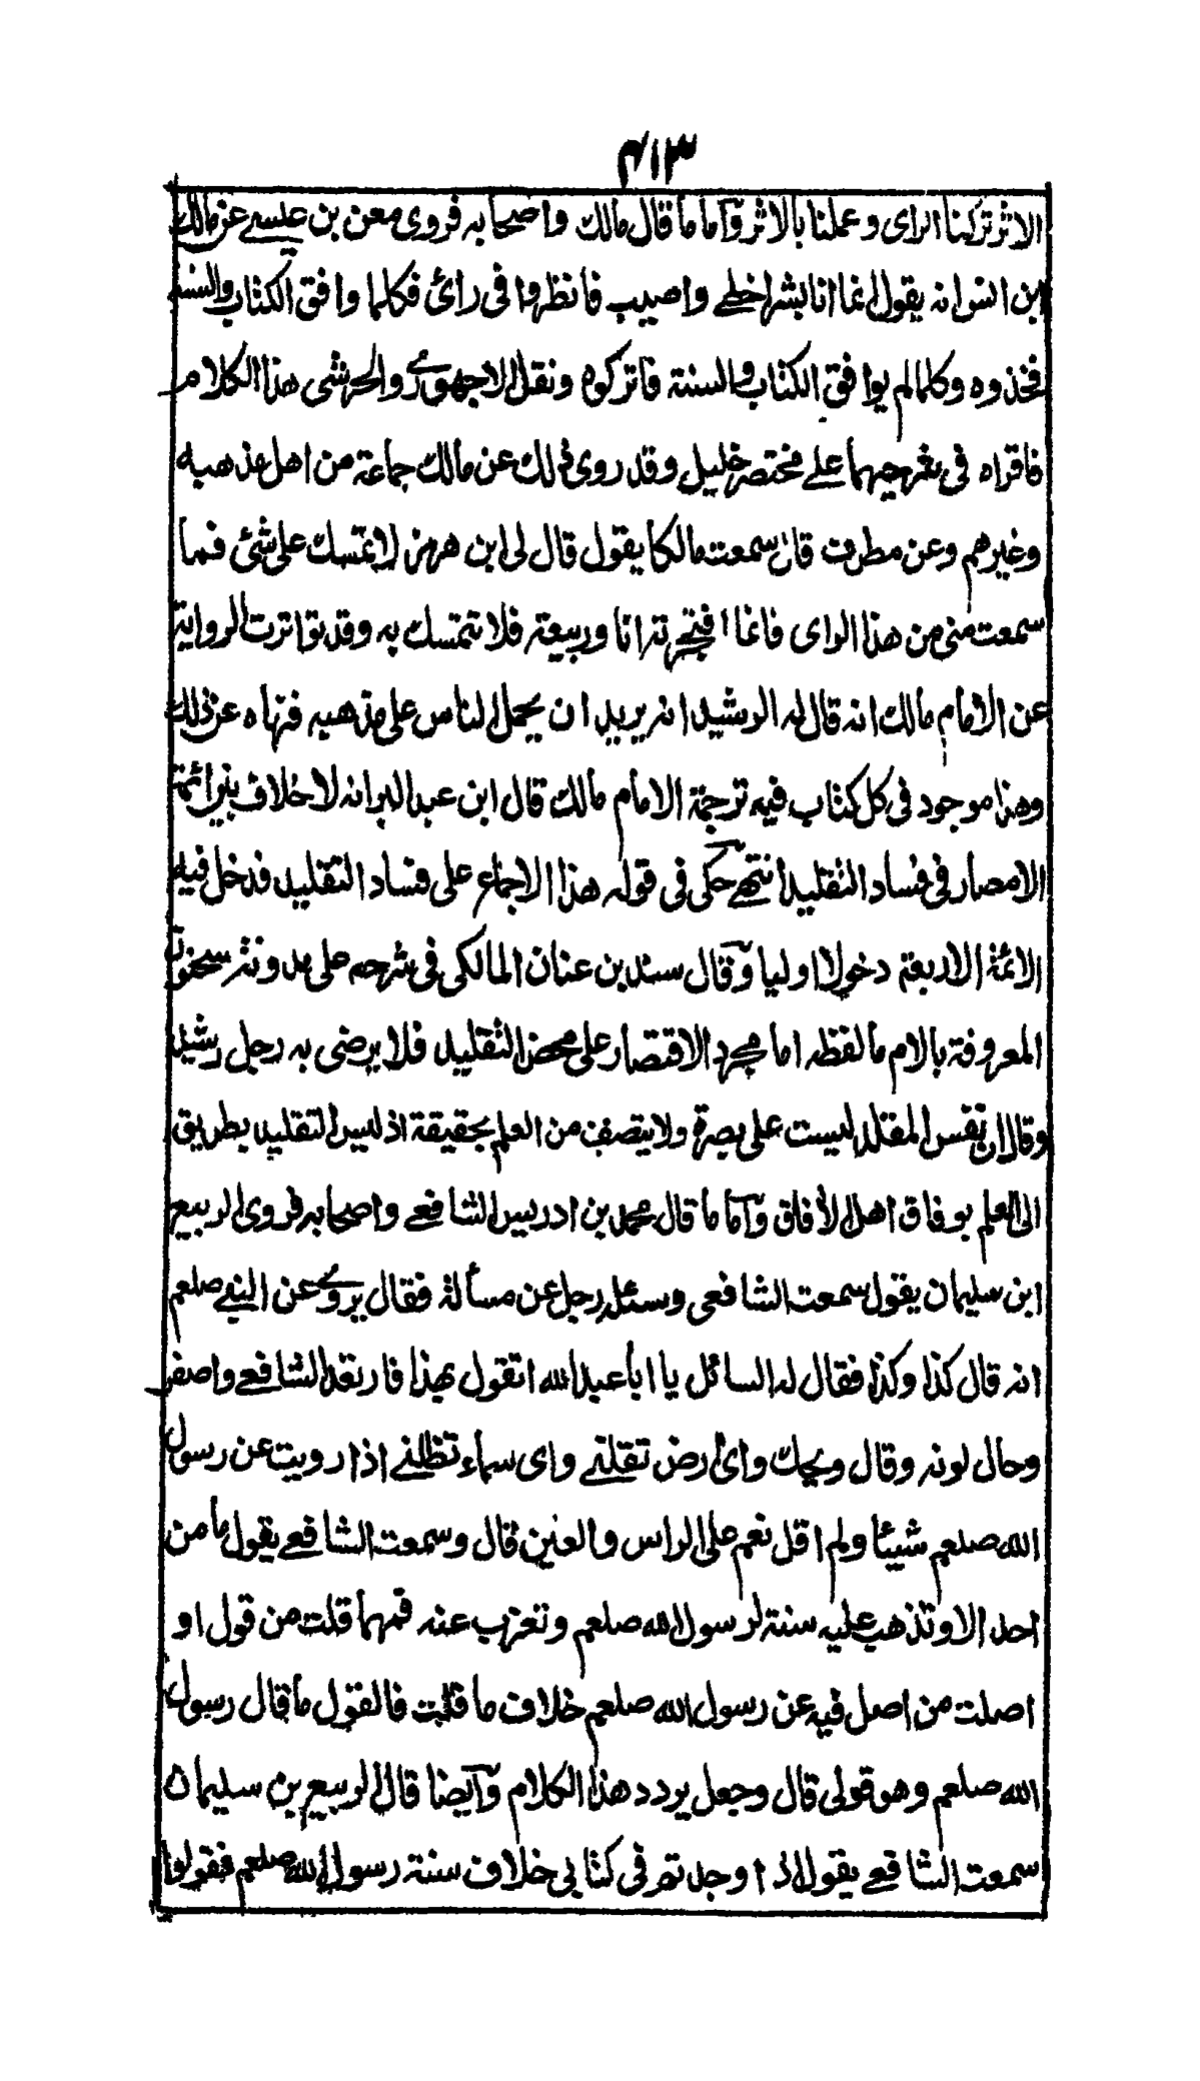 ٤١٣
الاثر تركنا الراى وعملنا بالاثر وآما ما قال مالك واصحابه فروى معن بن عيسے عن مالك
ابن انس انه يقول انما انا بشر اخطے واصيب فانظروا فى رائ فكلما وافق الكتاب والسنة
فخذوه وكلما لم يوافق الكتاب والسنة فاتركوه ونقل الاجهورے والخرشى هذا الكلام
فاقراه فى شرحيهما علے مختصر خليل وقد روى ذلك عن مالك جماعة من اهل مذهبه
وغيرهم وعن مطرف قال سمعت مالكا يقول قال لى ابن هرمز لا تمتسك على شئ فما
سمعت منى من هذا الراى فانما افتجرته انا وربيعة فلا تتمتسك به وقد تواترت الرواية
عن الامام مالك انه قال له الرشيد انه يريد ان يحمل الناس على مذهبه فنهاه عن ذلك
وهذا موجود فى كل كتاب فيه ترجمة الامام مالك قال ابن عبد البر انه لا خلاف بين ائمة
الامصار فى فساد التقليد انتهےٓ حكى فى قوله هذا الاجماع على فساد التقليد فدخل فيه
الائمة الاربعة دخولا اوليا وٓقال سند بن عنان المالكى فى شرحه على مدونة سحنون
المعروفة بالام ما لفظه اما مجرد الاقتصار على محض التقليد فلا يرضى به رجل رشيد
وقال ان نفس المقلد ليست على بصيرة ولا يتصف من العلم بحقيقة اذ ليس التقليد بطريق
الى العلم بوفاق اهل الآفاق وآما ما قال محمد بن ادريس الشافعے واصحابه فروى الربيع
ابن سليمان يقول سمعت الشافعى وسئله رجل عن مسألة فقال يروےٓ عن النبے صلعم
انه قال كذا وكذا فقال له السائل يا ابا عبد الله اتقول بهذا فارتعد الشافعے واصفر
وحال لونه وقال ويحك واى ارض تقلنے واى سماء تظلنے اذا رويت عن رسول
الله صلعم شيئا ولم اقل نعم على الراس والعنين قال وسمعت الشافعے يقول ما من
احد الا وتذهب عليه سنة لرسول الله صلعم وتعزب عنه فمهما قلت من قول او
اصلت من اصل فيه عن رسول الله صلعم خلاف ما قلت فالقول ما قال رسول
الله صلعم وهو قولى قال وجعل يردد هذا الكلام وآيضا قال الربيع بن سليمان
سمعت الشافعے يقول اذا وجدتم فى كتابى خلاف سنة رسول الله صلعم فقولوا